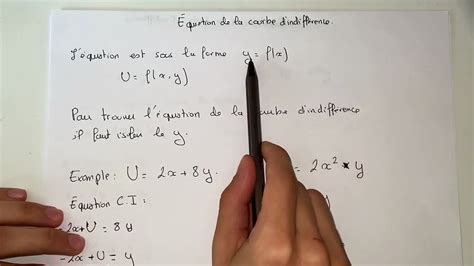 Équation de la courbe d'indifférence.
L'équation est sous la forme y = f(x)
U = f(x, y)
Pour trouver l'équation de la courbe d'indifférence
il faut isoler le y.
Example: U = 2x + 8y. = 2x² * y
Équation C.I:
-2x+U = 8y
-2x + U = y